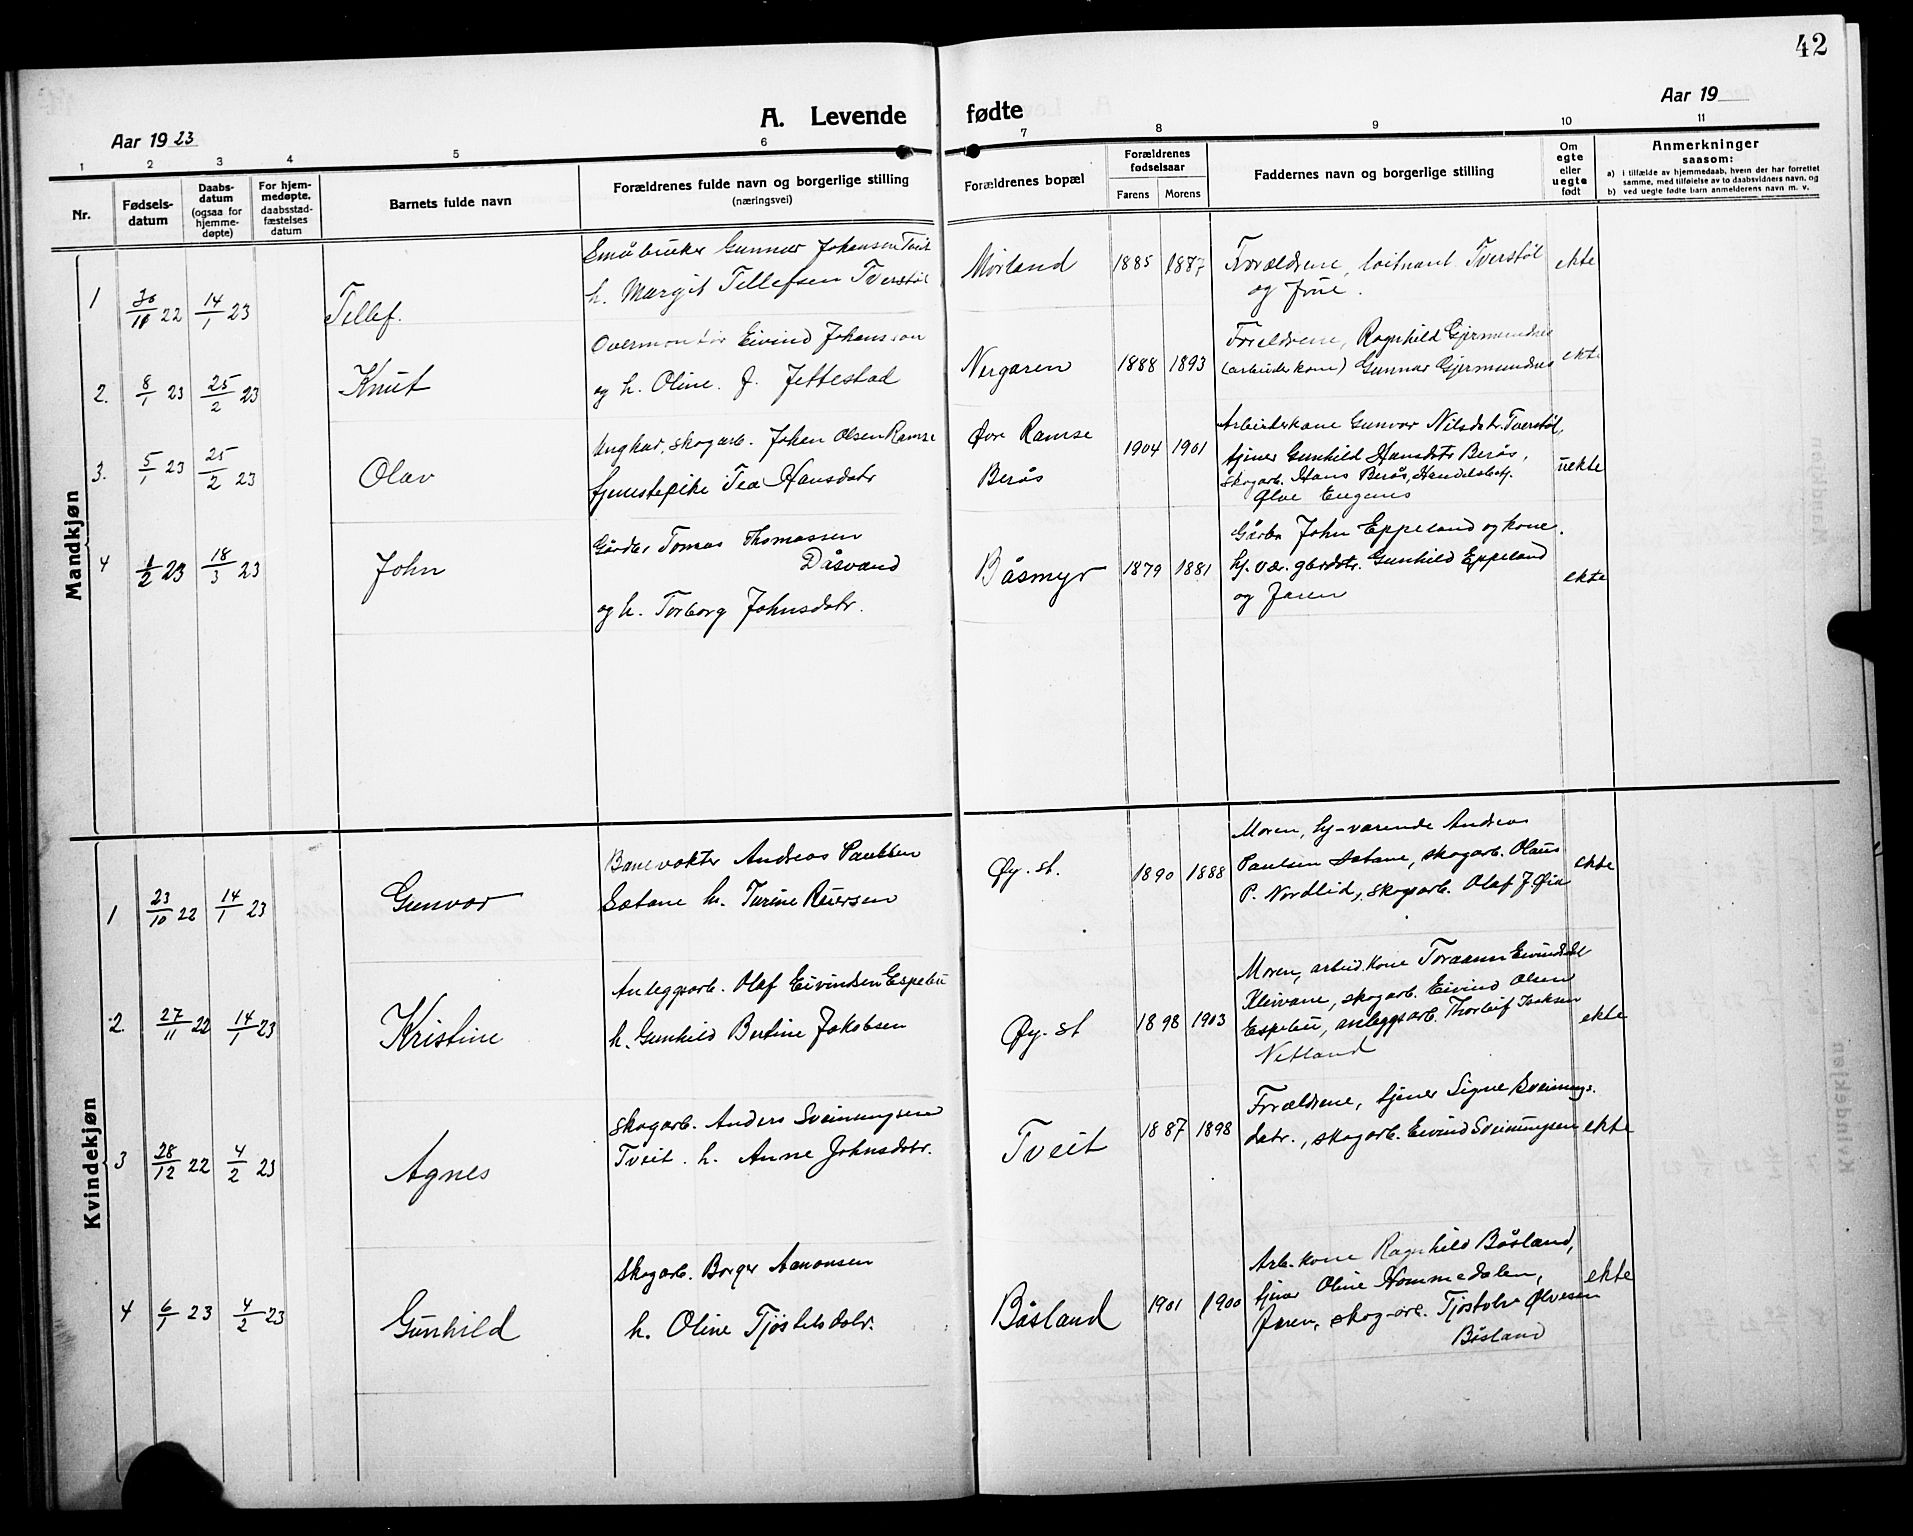 42
A. Levende fødte
Aar 1923
Aar 19
1 2 3 4 5 6 7 8 9 10 11
Nr.
Fødsels-
datum
Daabs-
datum
(ogsaa for
hjemme-
døpte)
For hjem-
medøpte,
daabsstad-
fæstelses
datum
Barnets fulde navn
Forældrenes fulde navn og borgerlige stilling
(næringsvei)
Forældrenes bopæl
Forældrenes
fødselsaar
Farens Morens
Faddernes navn og borgerlige stilling
Om
egte
eller
uegte
født
Anmerkninger
saasom:
a) i tilfælde av hjemmedaab, hvem der har forrettet
samme, med tilføielse av to daabsvidners navn, og
b) ved uegte fødte barn anmelderens navn m. v.
Mandkjøn
1 30/11 22 14/1 23 Tellef.
Småbruker Gunnar Johansen Tveit
h. Margit Tellefsen Tverstøl
Mørland 1885 1887
Forældrene, løitnant Tverstøl
og frue.
ekte
2. 8/1 23 25/2 23 Knut
Overmontør Eivind Johansson
og h. Oline. J. Jettestad
Nergaren 1888 1893
Foreldrene, Ragnhild Gjermundnes
(arbeiderkone) Gunnar Gjermundnes
ekte
3. 5/1 23 25/2 23 Olav
Ungkar, skogarb. Johen Olsen Ramse
tjenestepike Tea Hansdatr
Øvre Ramse
Berås
1904 1901
Arbeiderkone Gunvor Nilsdtr. Tverstøl,
tjener Gunhild Hansdtr Berås,
skogarb. Hans Berås, Handelsbetj.
Ølve Eugenus
uekte
4 1/2 23 18/3 23 John
Gårdbr Tomas Thomassen
Dåsvand
og h. Torborg Johnsdatr.
Båsmyr 1879 1881
Gårbr John Eppeland og kone.
hj. vær. gårdstr. Gunhild Eppeland
og faren
ekte
Kvindekjøn
1 23/10 22 14/1 23 Gunvor
Banevokter Andreas Paulsen
Sætane h. Turine Reiersen
Øy. st. 1890 1888
Moren, hj-værende Andreas
Paulsen Sætane, skogarb. Olaus
P. Nordlid, skogarb. Olaf J Øia
ekte
2 27/11 22 14/1 23 Kristine
Anleggsarb. Olaf Eivindsen Espeleie
h. Gunhild Bertine Jakobsen
Øy. st 1898 1903
Moren, arbeid. kone Toraann Eivindsdtr
Kleivane, skogarb. Eivind Olsen
Espeleie, anleggsarb. Thorleif Isaksen
Netland
ekte
3 28/12 22 4/2 23 Agnes
skogarb. Anders Sveinungsen
Tveit. h. Anne Johnsdatr.
Tveit 1887 1898
Forældrene, tjener Signe Sveinungs-
datr., skogarb. Eivind Sveinungsen
ekte
4 6/1 23 4/2 23 Gunhild
Skogarb. Borger Aanonsen
h. Oline Tjøstelsdatr.
Båsland 1901 1900
Arb. kone Ragnhild Båsland,
tjener Oline Hommedalen,
faren, skog-arb. Tjøstolv Ølvesen
Båsland
ekte